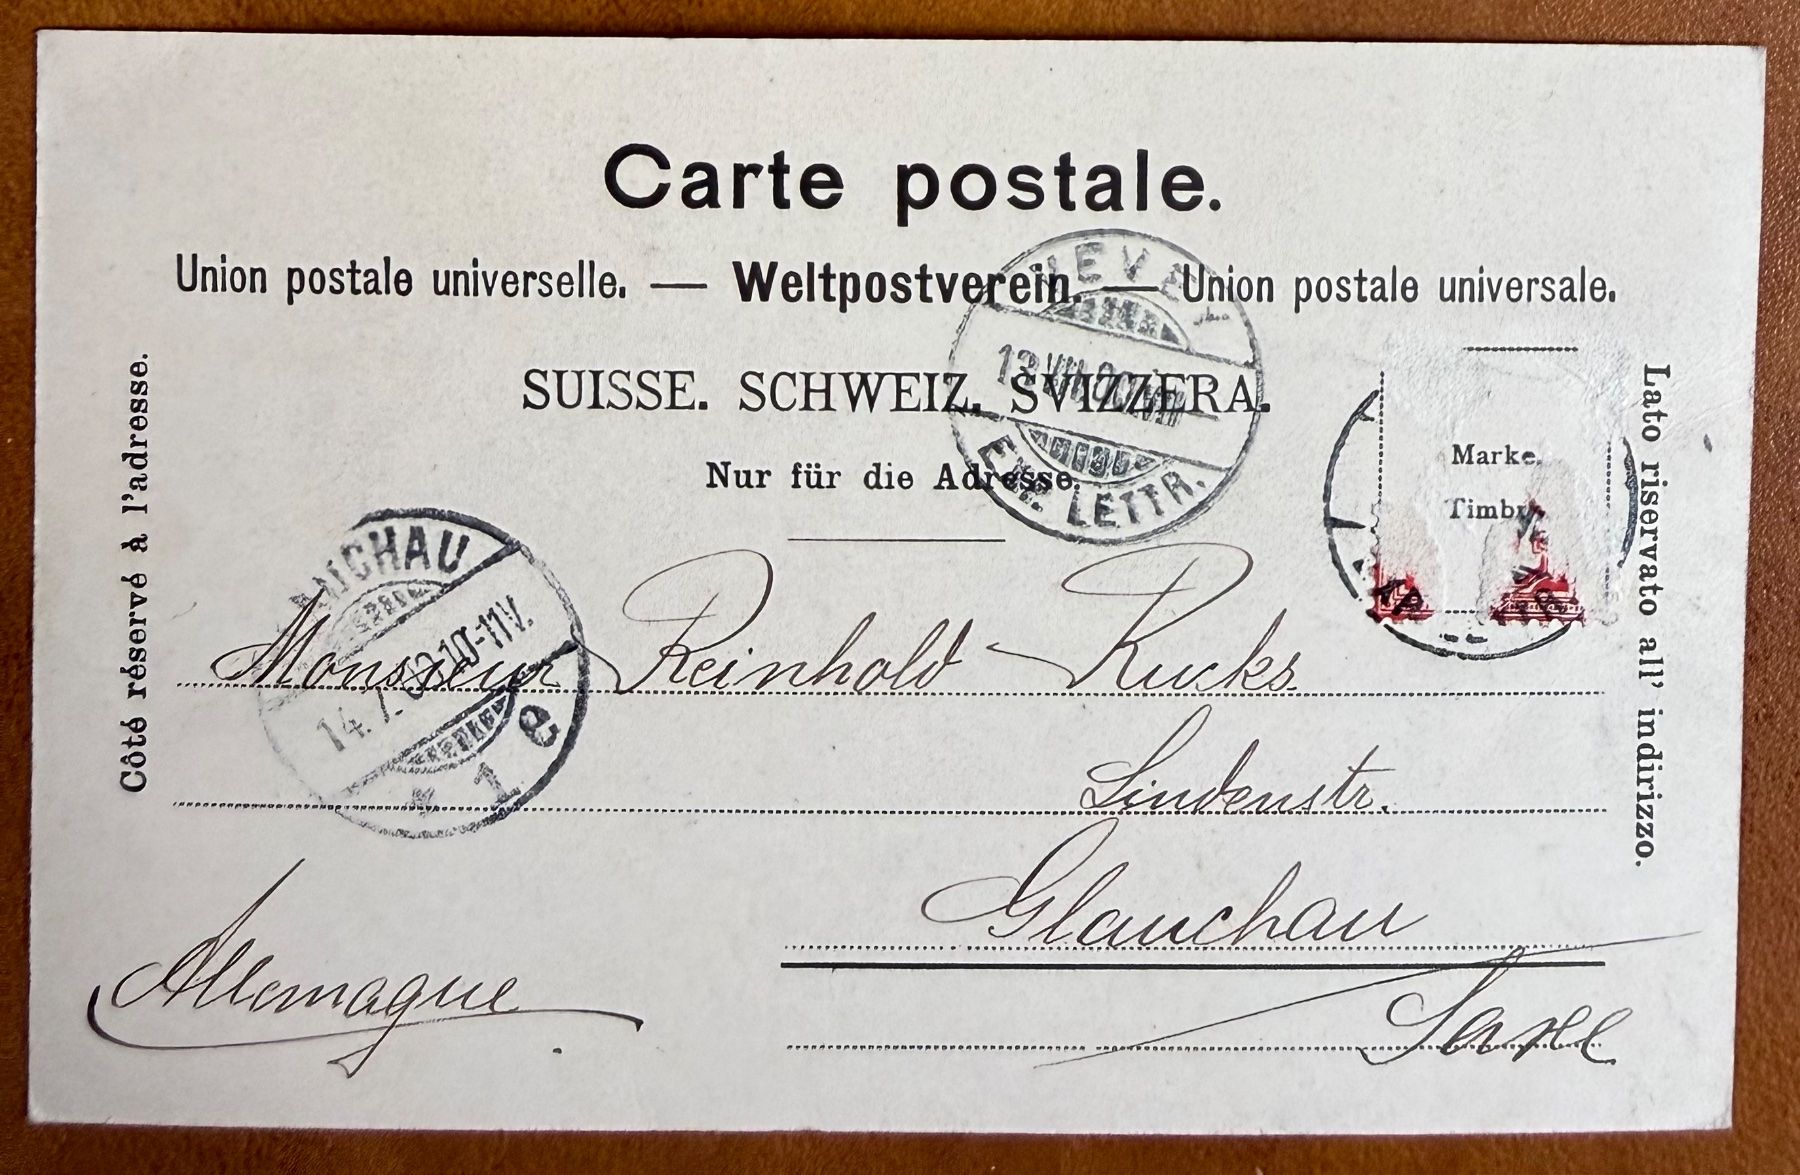 Carte postale.
Union postale universelle. — Weltpostverein. — Union postale universale.
SUISSE. SCHWEIZ. SVIZZERA.
Nur für die Adresse.
Côté réservé à l'adresse.
Lato riservato all' indirizzo.
Marke.
EXP. LETTR.
14.7. 10-11V.
1 e
Monsieur Reinhold Rucks
Lindenstr.
Glauchau
Allemagne
Saxe